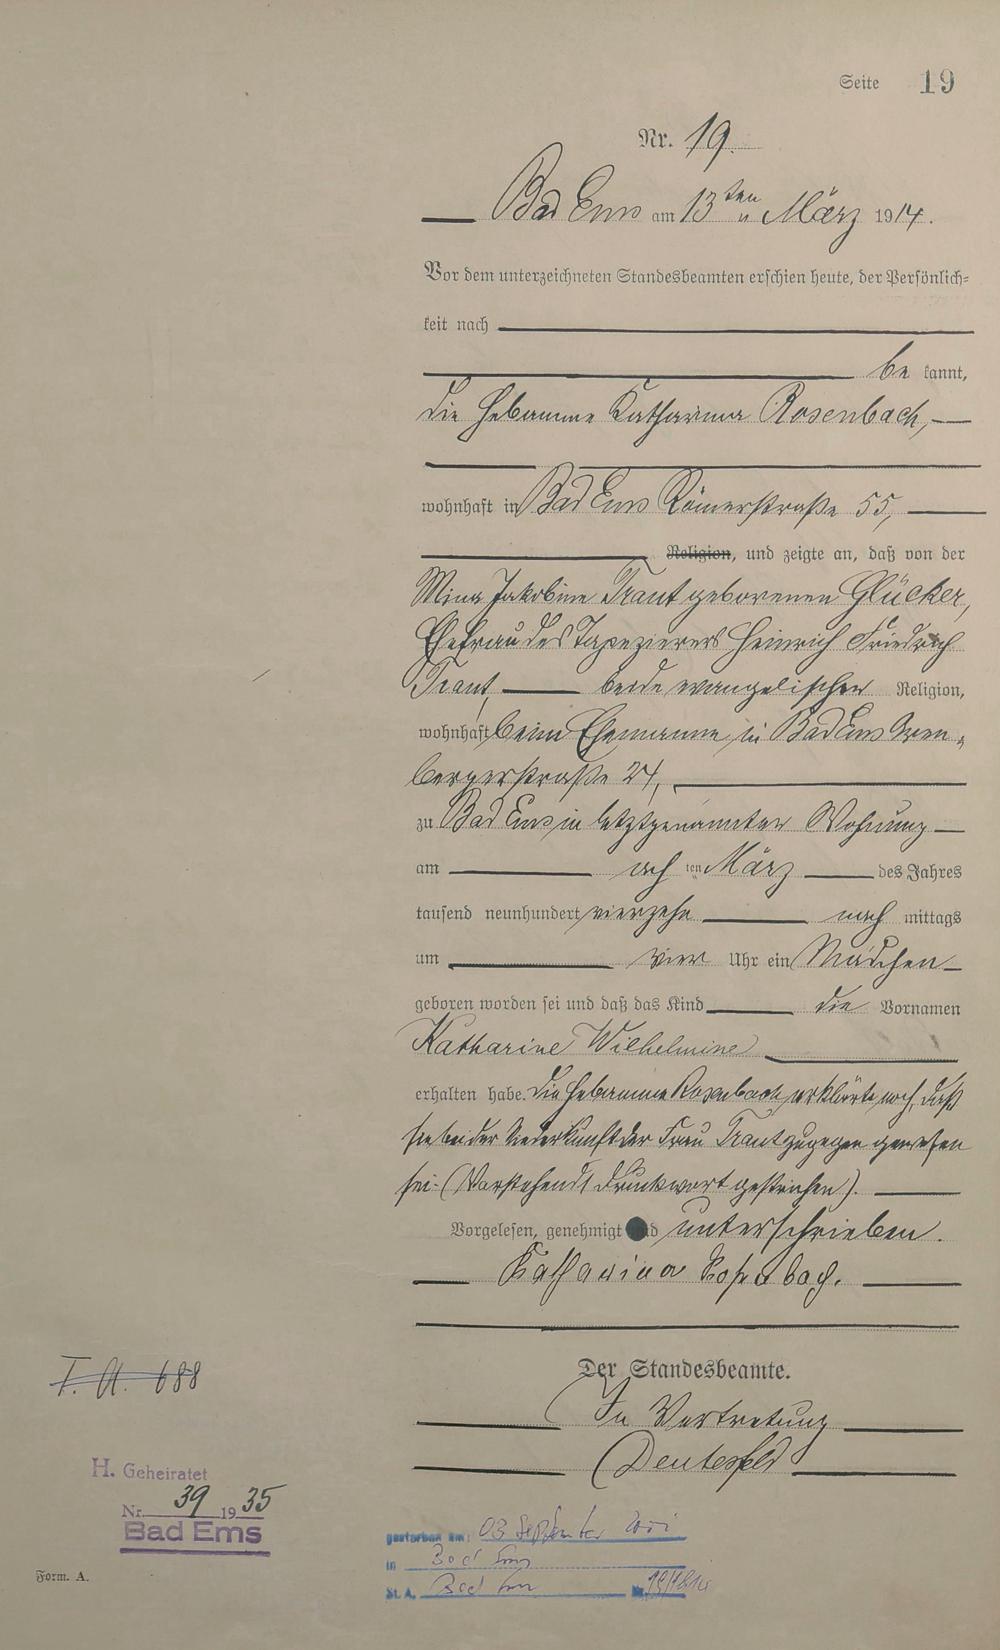 Seite 19
Nr. 19.
Bad Ems am 13ten März 1914.
Vor dem unterzeichneten Standesbeamten erschien heute, der Persönlich=
keit nach
be kannt,
die Hebamme Katharina Rosenbach,
wohnhaft in Bad Ems Römerstraße 55,
Religion, und zeigte an, daß von der
Mina Jakobine Traut geborenen Glücker,
Ehefrau des Tapezierers Heinrich Friedrich
Traut, beide evangelischer Religion,
wohnhaft beim Ehemanne in Bad Ems Aren=
bergerstraße 24,
zu Bad Ems in letztgenannter Wohnung
am ten März des Jahres
tausend neunhundert vierzehn nach mittags
um vier Uhr ein Mädchen
geboren worden sei und daß das Kind die Vornamen
Katharine Wilhelmine
erhalten habe. Die Hebamme Rosenbach erklärte noch, daß
sie bei der Niederkunft der Frau Traut zugegen gewesen
sei. (Vorstehend 1 Druckwort gestrichen).
Vorgelesen, genehmigt und unterschrieben.
Katharina Rosenbach.
Der Standesbeamte.
In Vertretung
T. A. 688
H. Geheiratet
Nr. 39 1935
Bad Ems
gestorben am: 03 September
in Bad Ems
St. A. Bad Ems Nr.
Form. A.